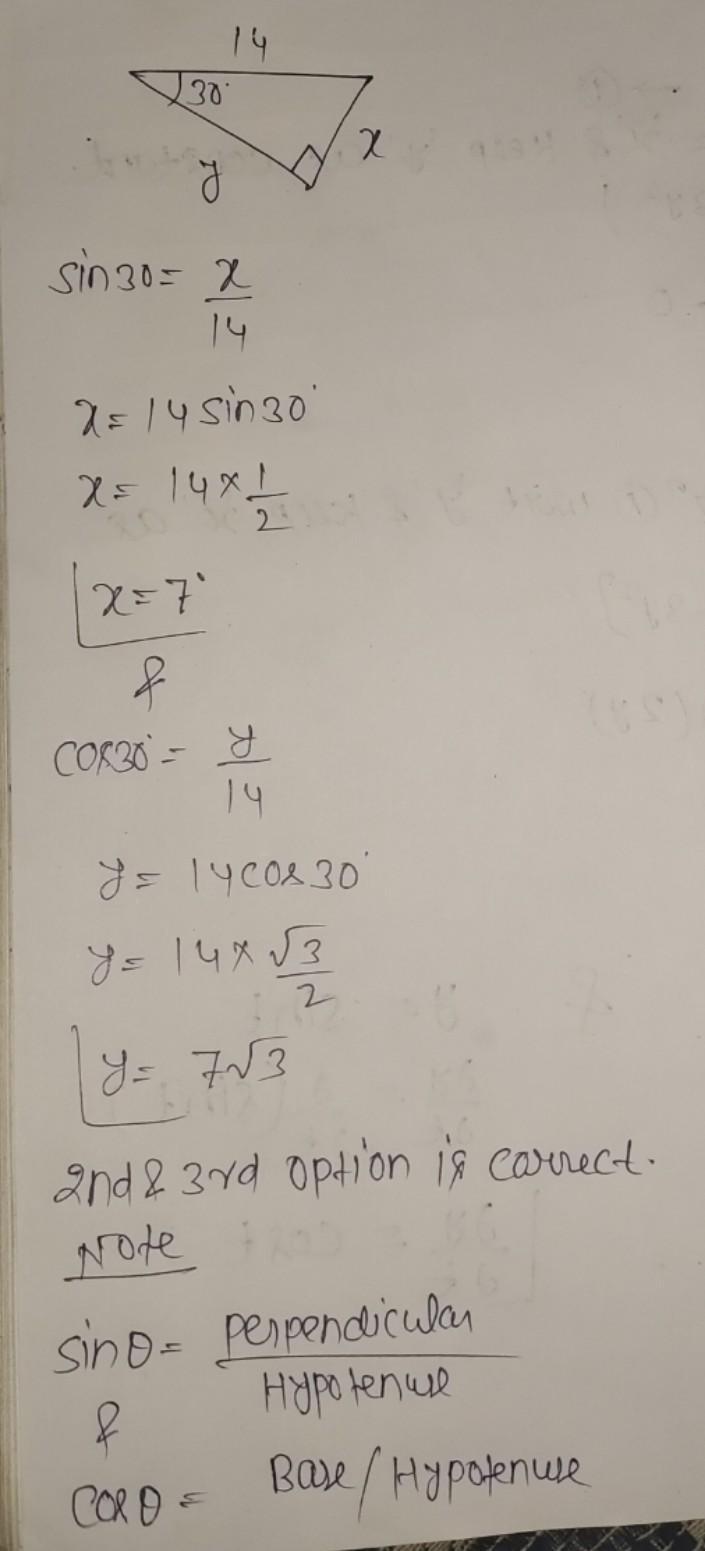 14
30°
x
y
sin30 = x/14
x = 14 sin30°
x = 14 × 1/2
x = 7
&
cos30° = y/14
y = 14cos30°
y = 14 × √3/2
y = 7√3
2nd & 3rd option is correct.
Note
sinθ = perpendicular/Hypotenuse
&
cosθ = Base/Hypotenuse